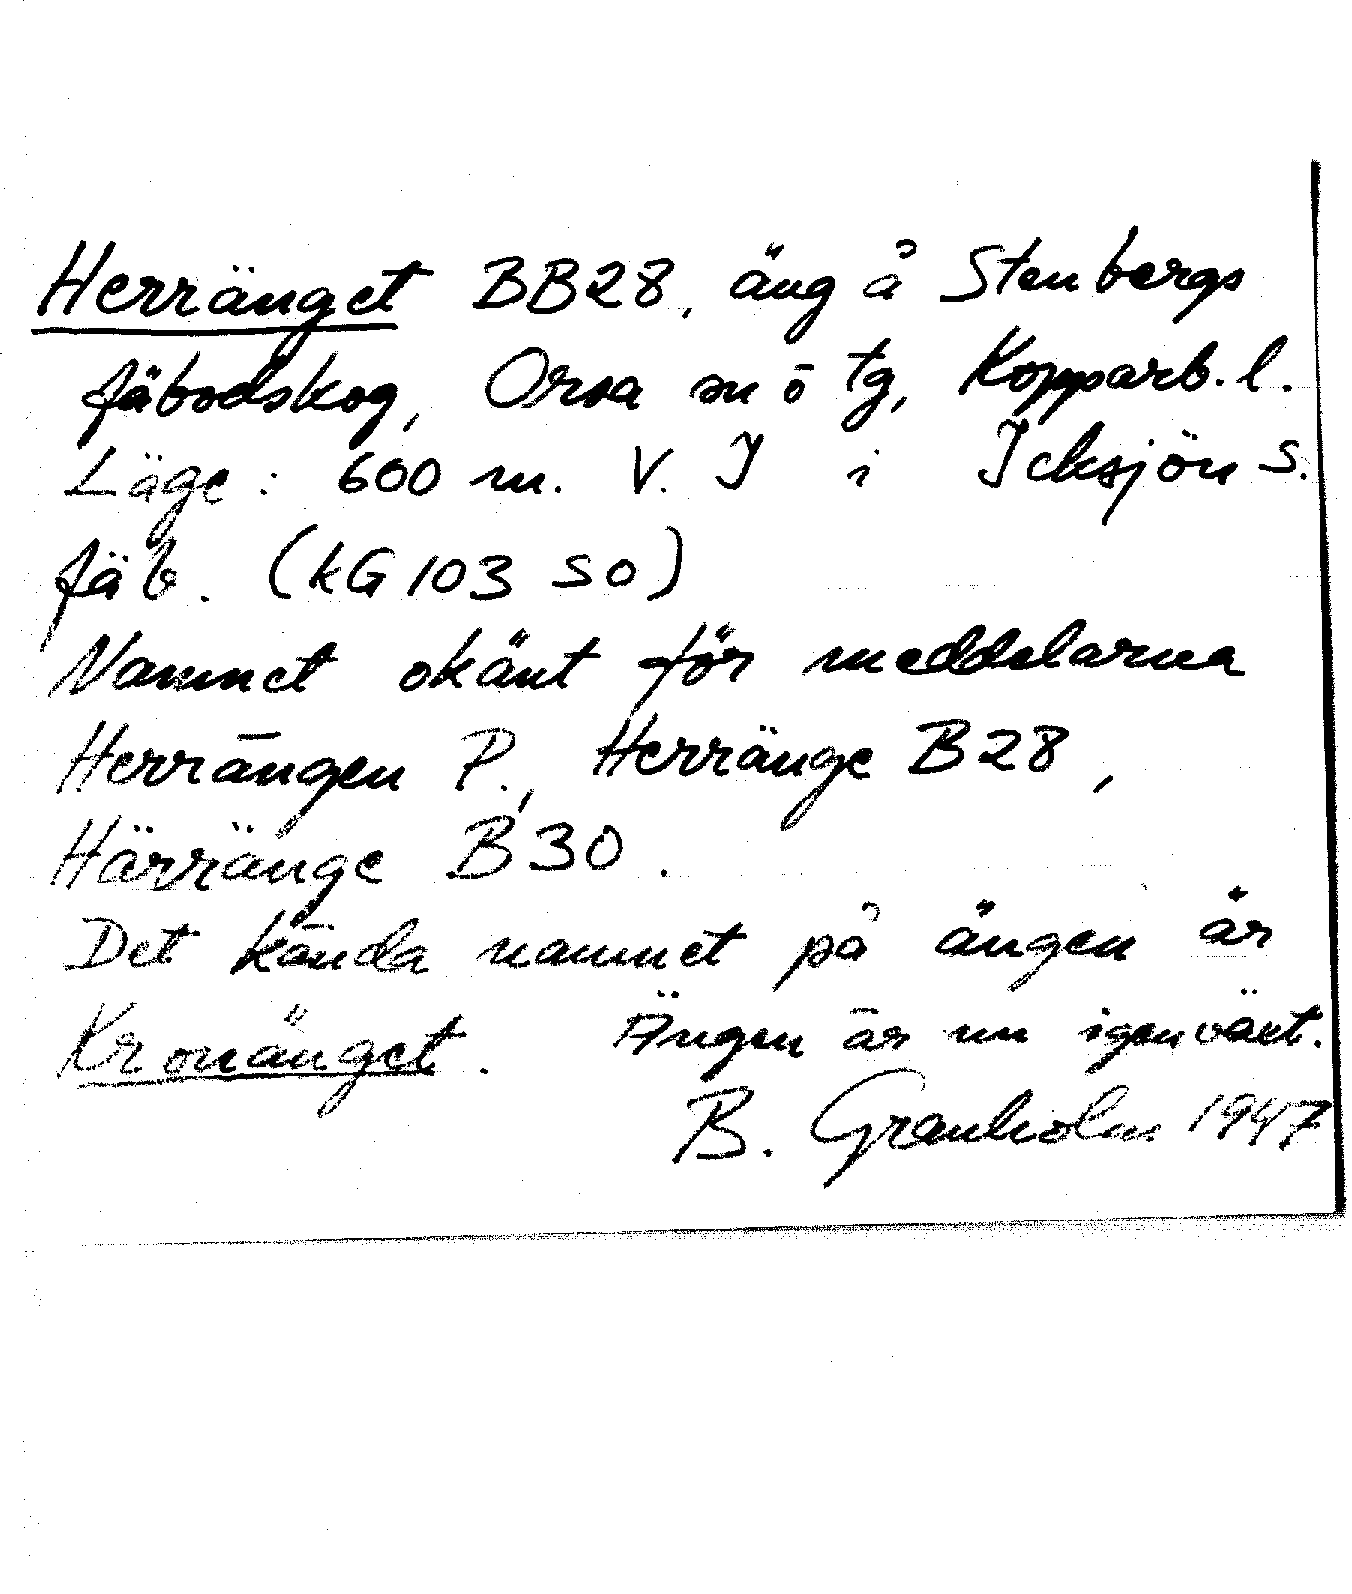 Herränget BB28, äng å Stenbergs
fäbodskog, Orsa sn ö tg, Kopparb. l.
Läge: 600 m. V. J i Icksjön S.
fäb. (kG 103 SO)
Namnet okänt för meddelarna
Herrängen P., Herränge B28,
Härränge B30.
Det kända namnet på ängen är
Kronänget. Ängen är nu igenväxt.
B. Granholm 1947